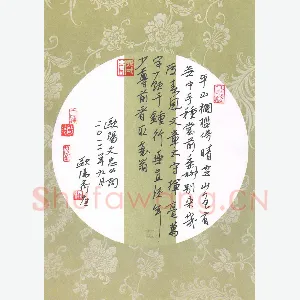 平山欄檻倚晴空山色有
無中手種堂前垂柳別來幾
度春風文章太守揮毫萬
字一飲千鍾行樂直須年
少尊前看取衰翁
歐陽文忠公詞
二〇二二年九月
歐陽
Shufawang.CN